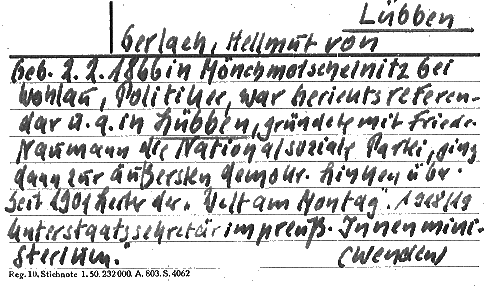 Lübben
Gerlach, Hellmut von
Geb. 2.2.1866 in Mönchmotschelnitz bei
Wohlau, Politiker, war Gerichtsreferen-
dar u.a. in Lübben, gründete mit Friedr.
Naumann die Nationalsoziale Partei, ging
dann zur äußersten demokr. Linken über.
Seit 1901 Chefred. der "Welt am Montag". 1918/19
Unterstaatssekretär im preuß. Innenmini-
sterium.
(wenden)
Reg. 10. Stichnote 1. 50. 232000. A. 803. S. 4062